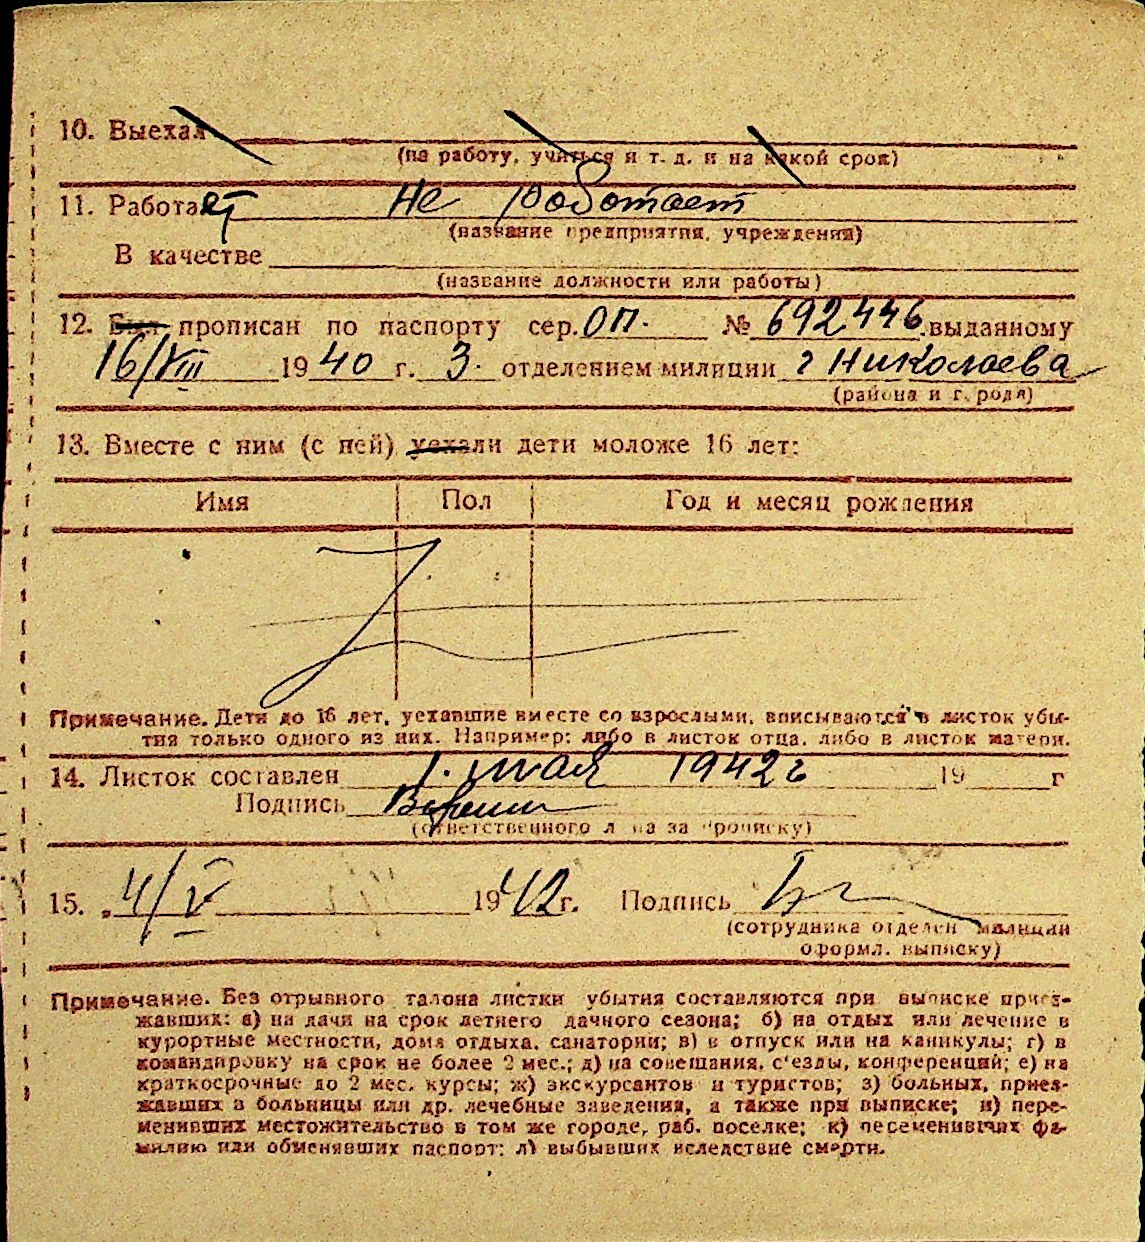 10. Выехал
(на работу, учиться и т. д. и на какой срок)
11. Работает Не работает
(название предприятия, учреждения)
В качестве
(название должности или работы)
12. Был прописан по паспорту сер. ОП. № 692446 выданному
16/VIII 1940 г. 3. отделением милиции г Николаева
(района и города)
13. Вместе с ним (с ней) уехали дети моложе 16 лет:
Имя Пол Год и месяц рождения
Примечание. Дети до 16 лет, уехавшие вместе со взрослыми, вписываются в листок убы-
тия только одного из них. Например: либо в листок отца, либо в листок матери.
14. Листок составлен 1. мая 1942 г 19 г
Подпись
(ответственного лица за прописку)
15. 4/V 1942 г. Подпись
(сотрудника отделен милиции
оформл. выписку)
Примечание. Без отрывного талона листки убытия составляются при выписке приез-
жавших: а) на дачи на срок летнего дачного сезона; б) на отдых или лечение в
курортные местности, дома отдыха, санатории; в) в отпуск или на каникулы; г) в
командировку на срок не более 2 мес.; д) на совещания, с'езды, конференций; е) на
краткосрочные до 2 мес. курсы; ж) экскурсантов и туристов; з) больных, приез-
жавших в больницы или др. лечебные заведения, а также при выписке; и) пере-
менивших местожительство в том же городе, раб. поселке; к) переменивших фа-
милию или обменявших паспорт; л) выбывших вследствие смерти.